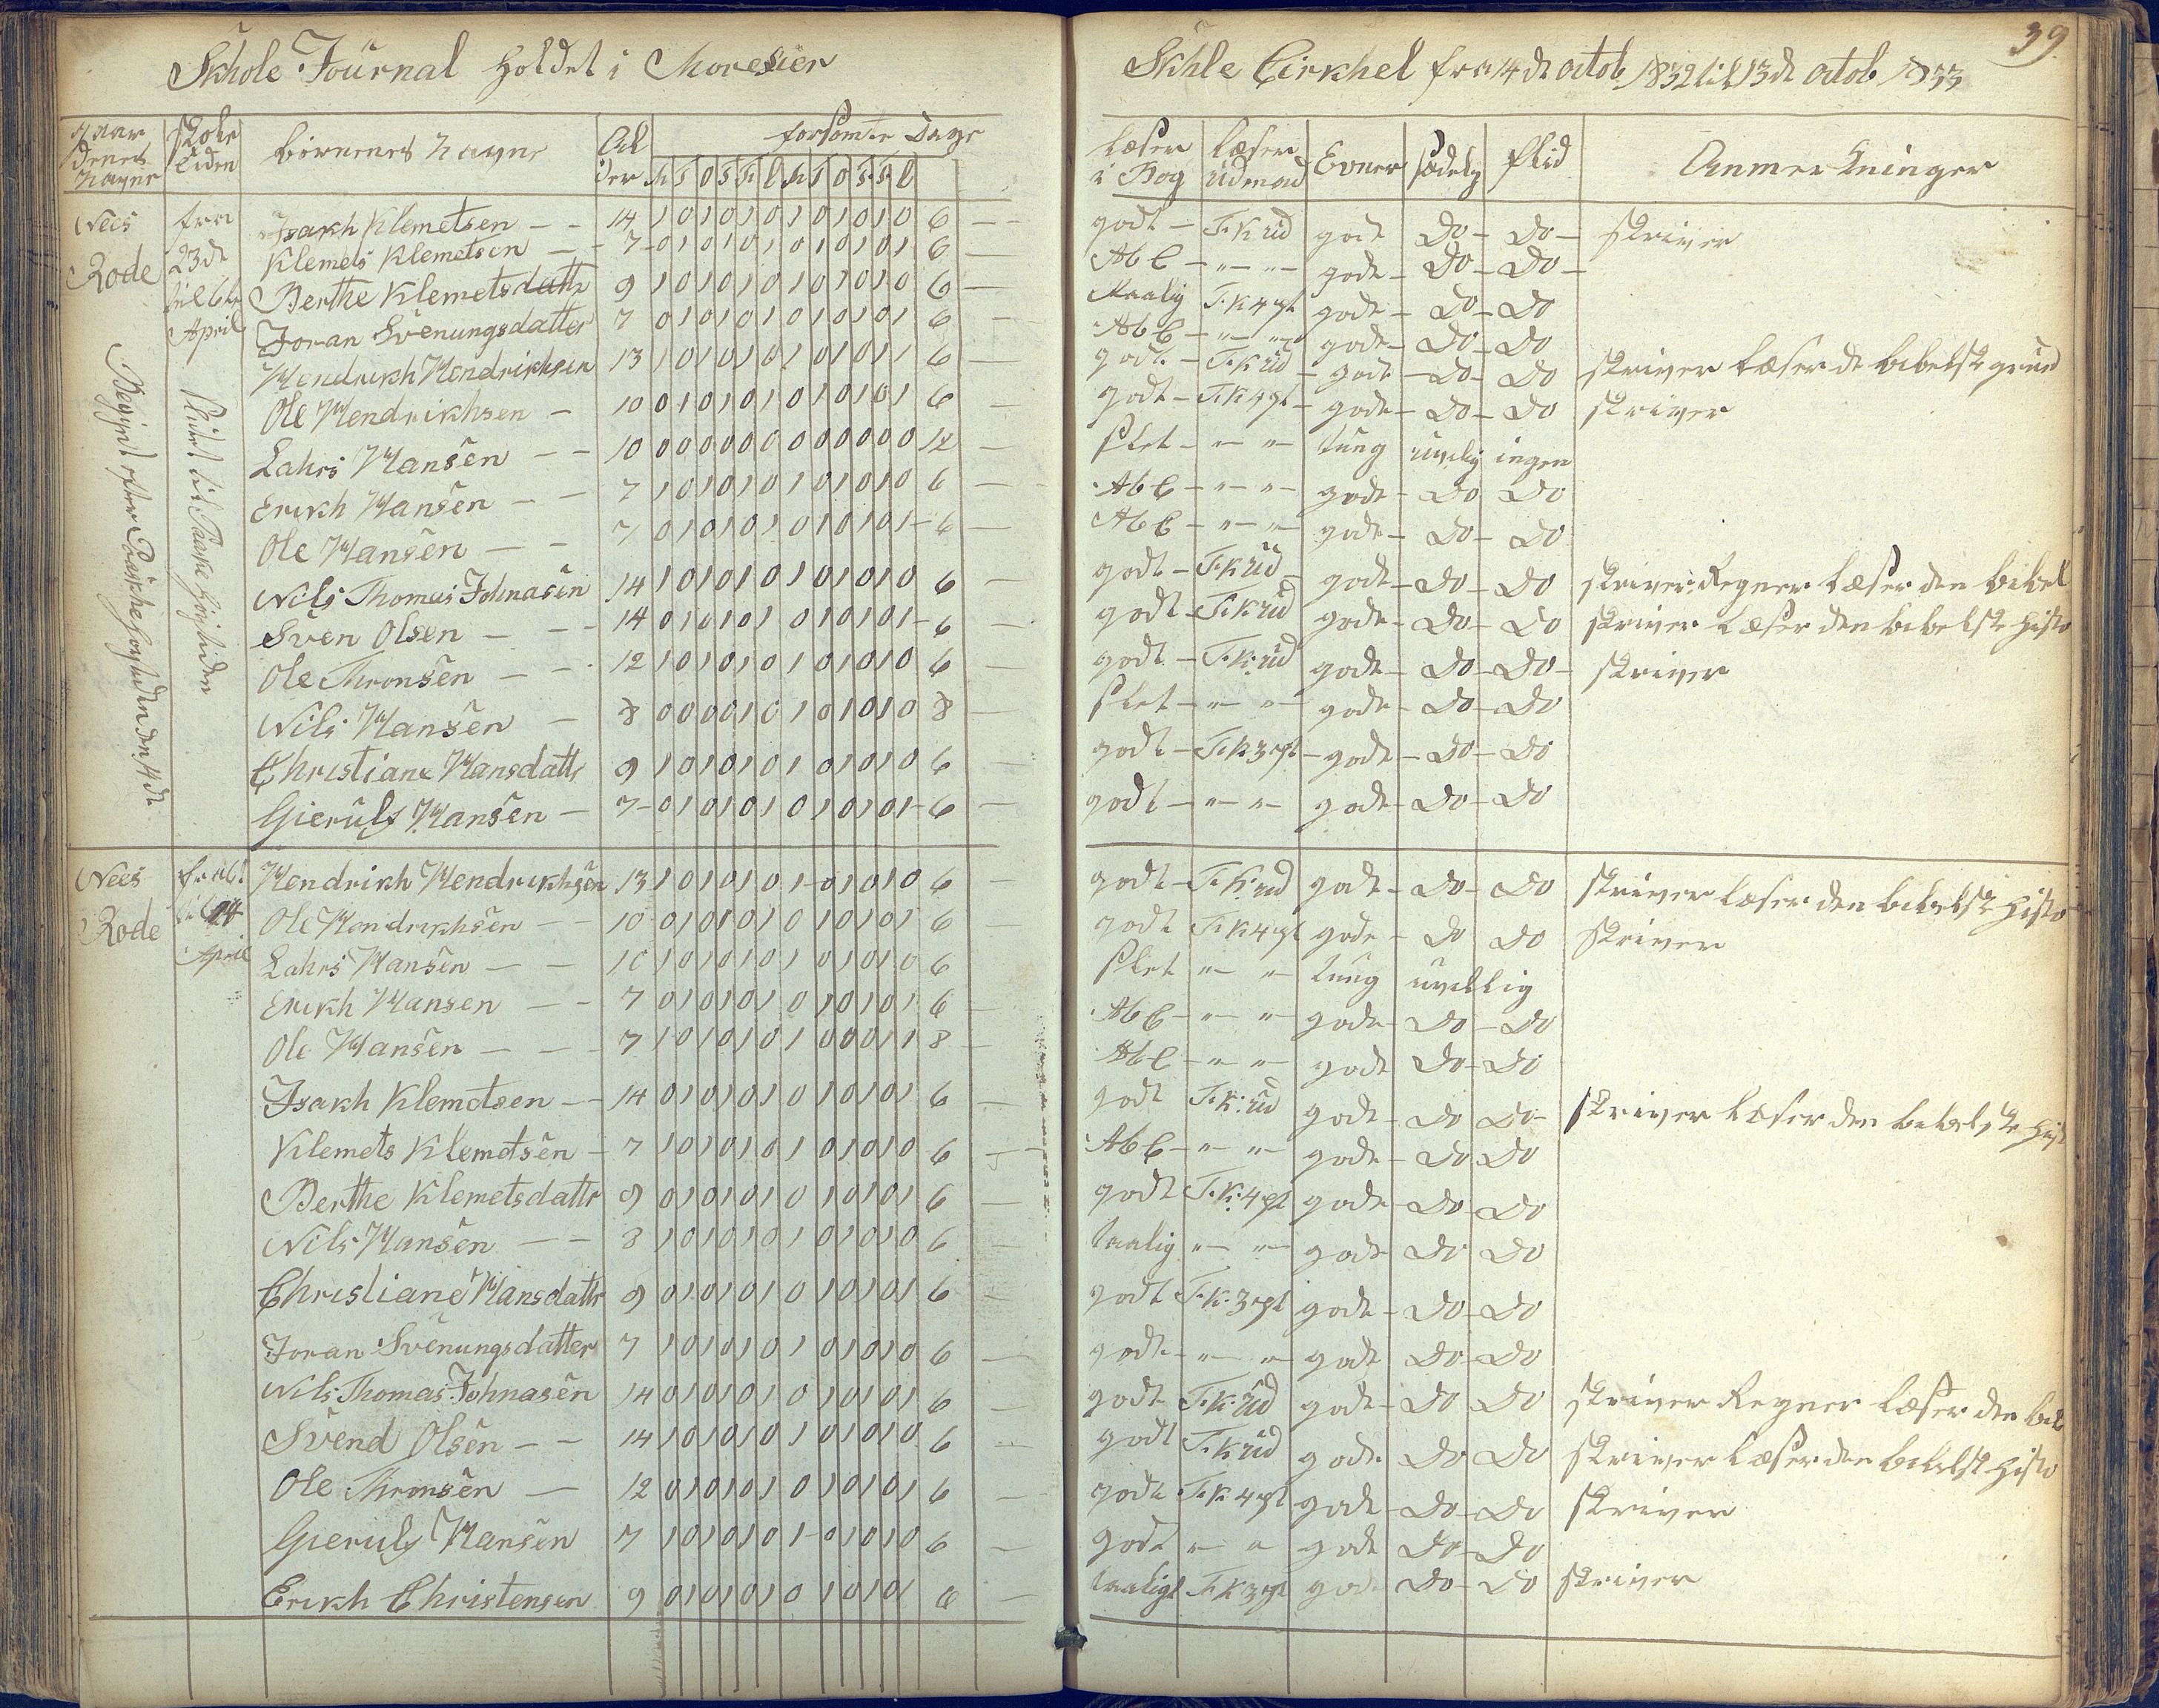 39
Skhole Journal holdet i Moresier Skhle Cirkhel fra 14de octob 1832 til 13de octob 1833
gaardenes Navne | Skoletiden | börnenes Navne | Alder | forsömte Dage | læser i Bog | læser udenad | Evner | sædelig | flid | Anmerkninger
M T O T F L M T O T F L
Nees Rode
fra 23de til 6te April
Sluttet til Paaskehöjtiden
Begynt efter Paaskehöytiden den 14de
Isakh Klemetsen — — 14 1 0 1 0 1 0 1 0 1 0 1 0 6 — godt — F.K ud gode Do — Do — skriver
Klemets Klemetsen — 7 0 1 0 1 0 1 0 1 0 1 0 1 6 — Ab C — " — " — gode — Do — Do —
Berthe Klemetsdattr 9 1 0 1 0 1 0 1 0 1 0 1 0 6 — Maalig F.K 4 pt gode — Do — Do
Joran Svenungsdatter 7 0 1 0 1 0 1 0 1 0 1 0 1 6 — Ab C — " — " gode — Do — Do
Hendrikh Hendrikhsen 13 1 0 1 0 1 0 1 0 1 0 1 1 6 — godt — F.K ud — gode — Do — Do skriver læser de bibelske
Ole Hendrikhsen — 10 0 1 0 1 0 1 0 1 0 1 0 1 6 — godt — F.K 4 pt — gode — Do — Do skriver
Lahrs Hansen — — 10 0 0 0 0 0 0 0 0 0 0 0 0 12 — slet — " — " tung uvilig ingen
Erikh Hansen — — 7 1 0 1 0 1 0 1 0 1 0 1 0 6 — Ab C — " — " — gode — Do Do
Ole Hansen — — 7 0 1 0 1 0 1 0 1 0 1 0 1 — 6 — Ab C — " — " gode — Do — Do
Nils Thomas Johnasen 14 1 0 1 0 1 0 1 0 1 0 1 0 6 — godt — F.K ud — gode — Do — Do skriver Regner læser den bibel
Sven Olsen — — 14 0 1 0 1 0 1 0 1 0 1 0 1 — 6 — godt — F.K ud gode — Do — Do skriver læser den bibelske histo
Ole Thronsen — — 12 1 0 1 0 1 0 1 0 1 0 1 0 6 — godt — F.K: ud gode — Do — Do — skriver
Nils Hansen — 8 0 0 0 0 1 0 1 0 1 0 1 0 8 — slet — " — " — gode — Do — Do
Christiane Hansdattr 9 1 0 1 0 1 0 1 0 1 0 1 0 6 — godt — F.K 3 pt — gode — Do — Do
Gieruls Hansen — 7 — 0 1 0 1 0 1 0 1 0 1 0 1 — 6 — godt — " — " — gode — Do — Do
Nees Rode
til 14 April
Hendrikh Hendrikhsen 13 1 0 1 0 1 0 1 — 0 1 0 1 0 6 — godt — F.K: ud gode — Do — Do skriver læser den bibelske histo
Ole Hendrikhsen — — 10 0 1 0 1 0 1 0 1 0 1 0 1 6 — godt F.K 4 pt gode — Do Do skriver
Lahrs Hansen — — 10 1 0 1 0 1 0 1 0 1 0 1 0 6 slet " — " tung uvillig
Erikh Hansen — — 7 0 1 0 1 0 1 0 1 0 1 0 1 6 — Ab C — " — " gode — Do — Do
Ole Hansen — — 7 1 0 1 0 1 0 1 0 0 0 1 1 8 — Ab C — " — " — gode Do — Do
Isakh Klemetsen — — 14 0 1 0 1 0 1 0 1 0 1 0 1 6 — godt F.K: ud gode — Do Do — skriver læser den bibelske hist
Klemets Klemetsen — 7 1 0 1 0 1 0 1 0 1 0 1 0 6 — Ab C — " — " — gode — Do Do
Berthe Klemetsdattr 9 0 1 0 1 0 1 0 1 0 1 0 1 6 — godt F.K: 4 pt gode — Do — Do
Nils Hansen — — 8 1 0 1 0 1 0 1 0 1 0 1 0 6 — taalig " — " — gode Do Do
Christiane Hansdattr 9 0 1 0 1 0 1 0 1 0 1 0 1 6 — godt F.K. 3 pt gode — Do — Do
Joran Svenungsdatter 7 1 0 1 0 1 0 1 0 1 0 1 0 6 — gode — " — " — gode Do — Do
Nils Thomas Johnasen 14 0 1 0 1 0 1 0 1 0 1 0 1 6 — gode F.K: ud gode — Do Do skriver Regner læser den bib
Svend Olsen — — 14 1 0 1 0 1 0 1 0 1 0 1 0 6 — godt F.K ud gode Do Do skriver læser den bibelske histo
Ole Thronsen — 12 0 1 0 1 0 1 0 1 0 1 0 1 6 — gode F.K 4 pt gode — Do — Do skriver
Gieruls Hansen 7 1 0 1 0 1 0 1 — 0 1 0 1 0 6 — gode " — " gode Do — Do
Erikh Christensen 9 0 1 0 1 0 1 0 1 0 1 0 1 6 — taaligt F.K 3 pt gode Do — Do skriver